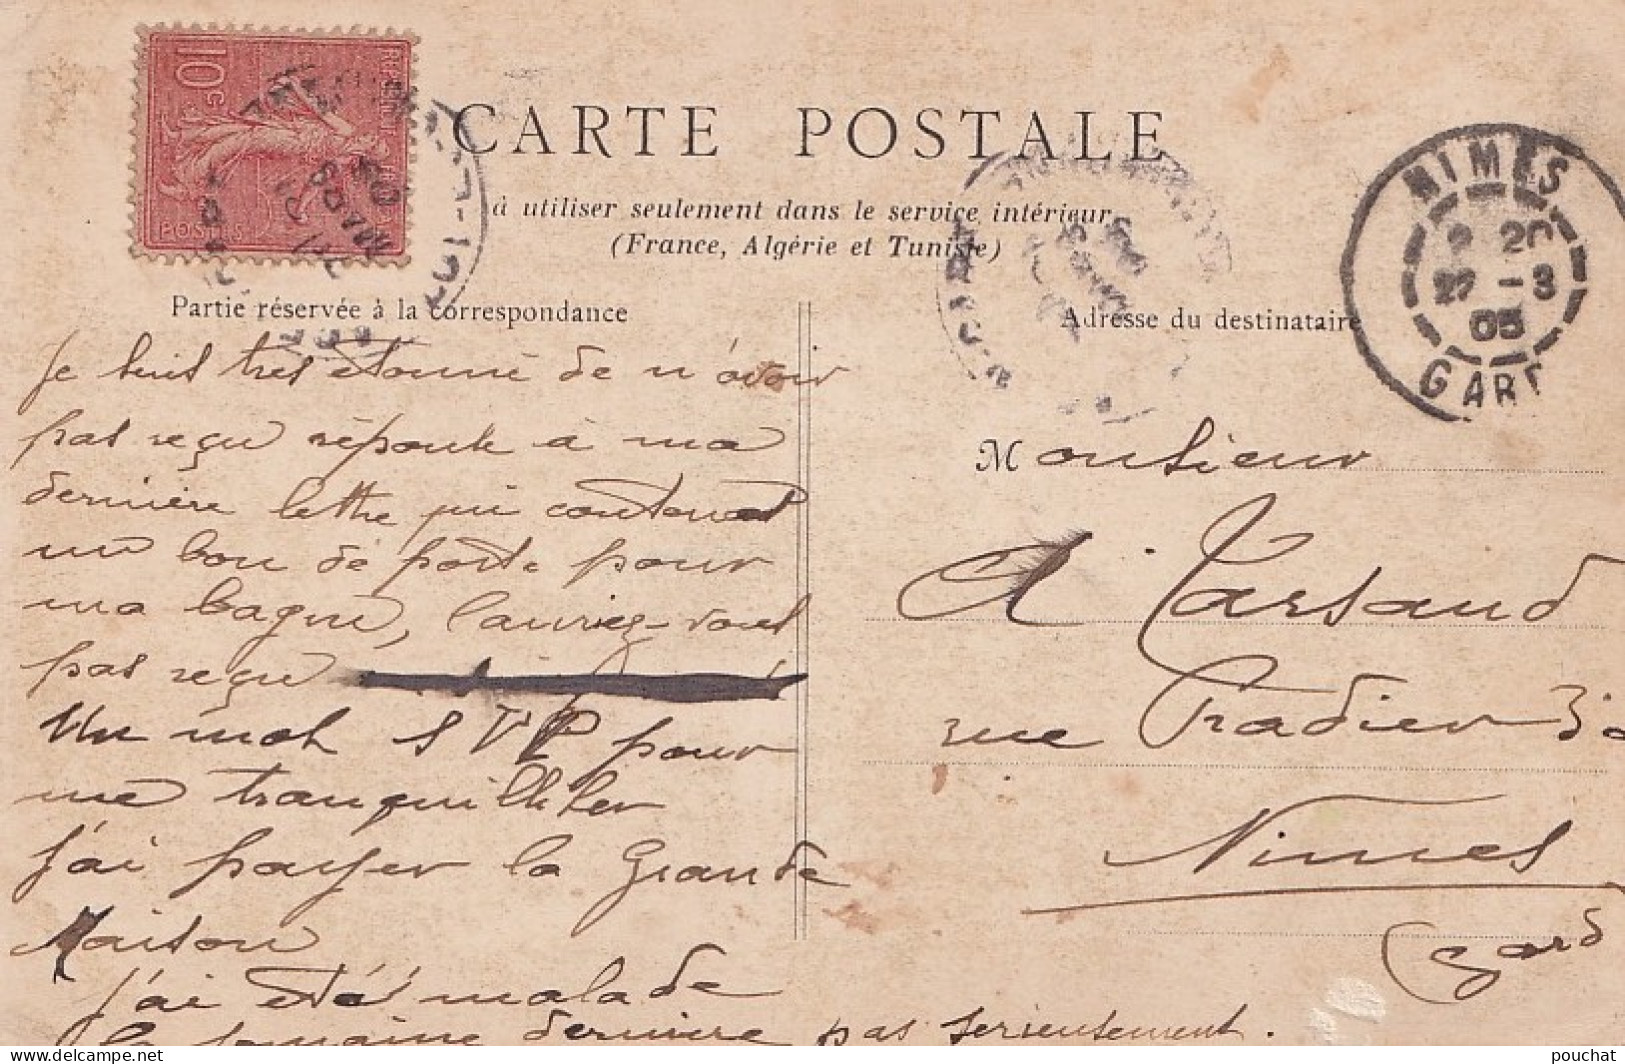 10
c
POSTES
CARTE POSTALE
à utiliser seulement dans le service intérieur
(France, Algérie et Tunisie)
Partie réservée à la correspondance
Je suis très étonné de n'avoir
pas reçu réponse à ma
dernière lettre qui contenait
un bon de poste pour
ma bague, l'auriez-vous
pas reçu
Un mot SVP pour
me tranquilliser
J'ai payer la Grande
Maison
J'ai été malade
la semaine dernière pas serieusement.
Adresse du destinataire
NIMES
2 20
27 -3
05
GARD
Monsieur
A Tarsaud
rue Pradier
Nimes
Gard
pouchat